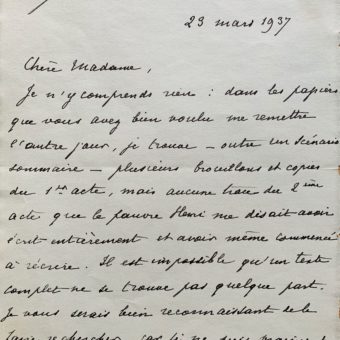 23 mars 1937
Chère Madame,
Je n'y comprends rien : dans les papiers
que vous avez bien voulu me remettre
l'autre jour, je trouve — outre un scénario
sommaire — plusieurs brouillons et copies
du 1er acte, mais aucune trace du 2ème
acte que le pauvre Henri me disait avoir
écrit entièrement et avoir même commencé
à récrire. Il est impossible qu'un texte
complet ne se trouve pas quelque part.
Je vous serais bien reconnaissant de le
faire rechercher, car je ne puis